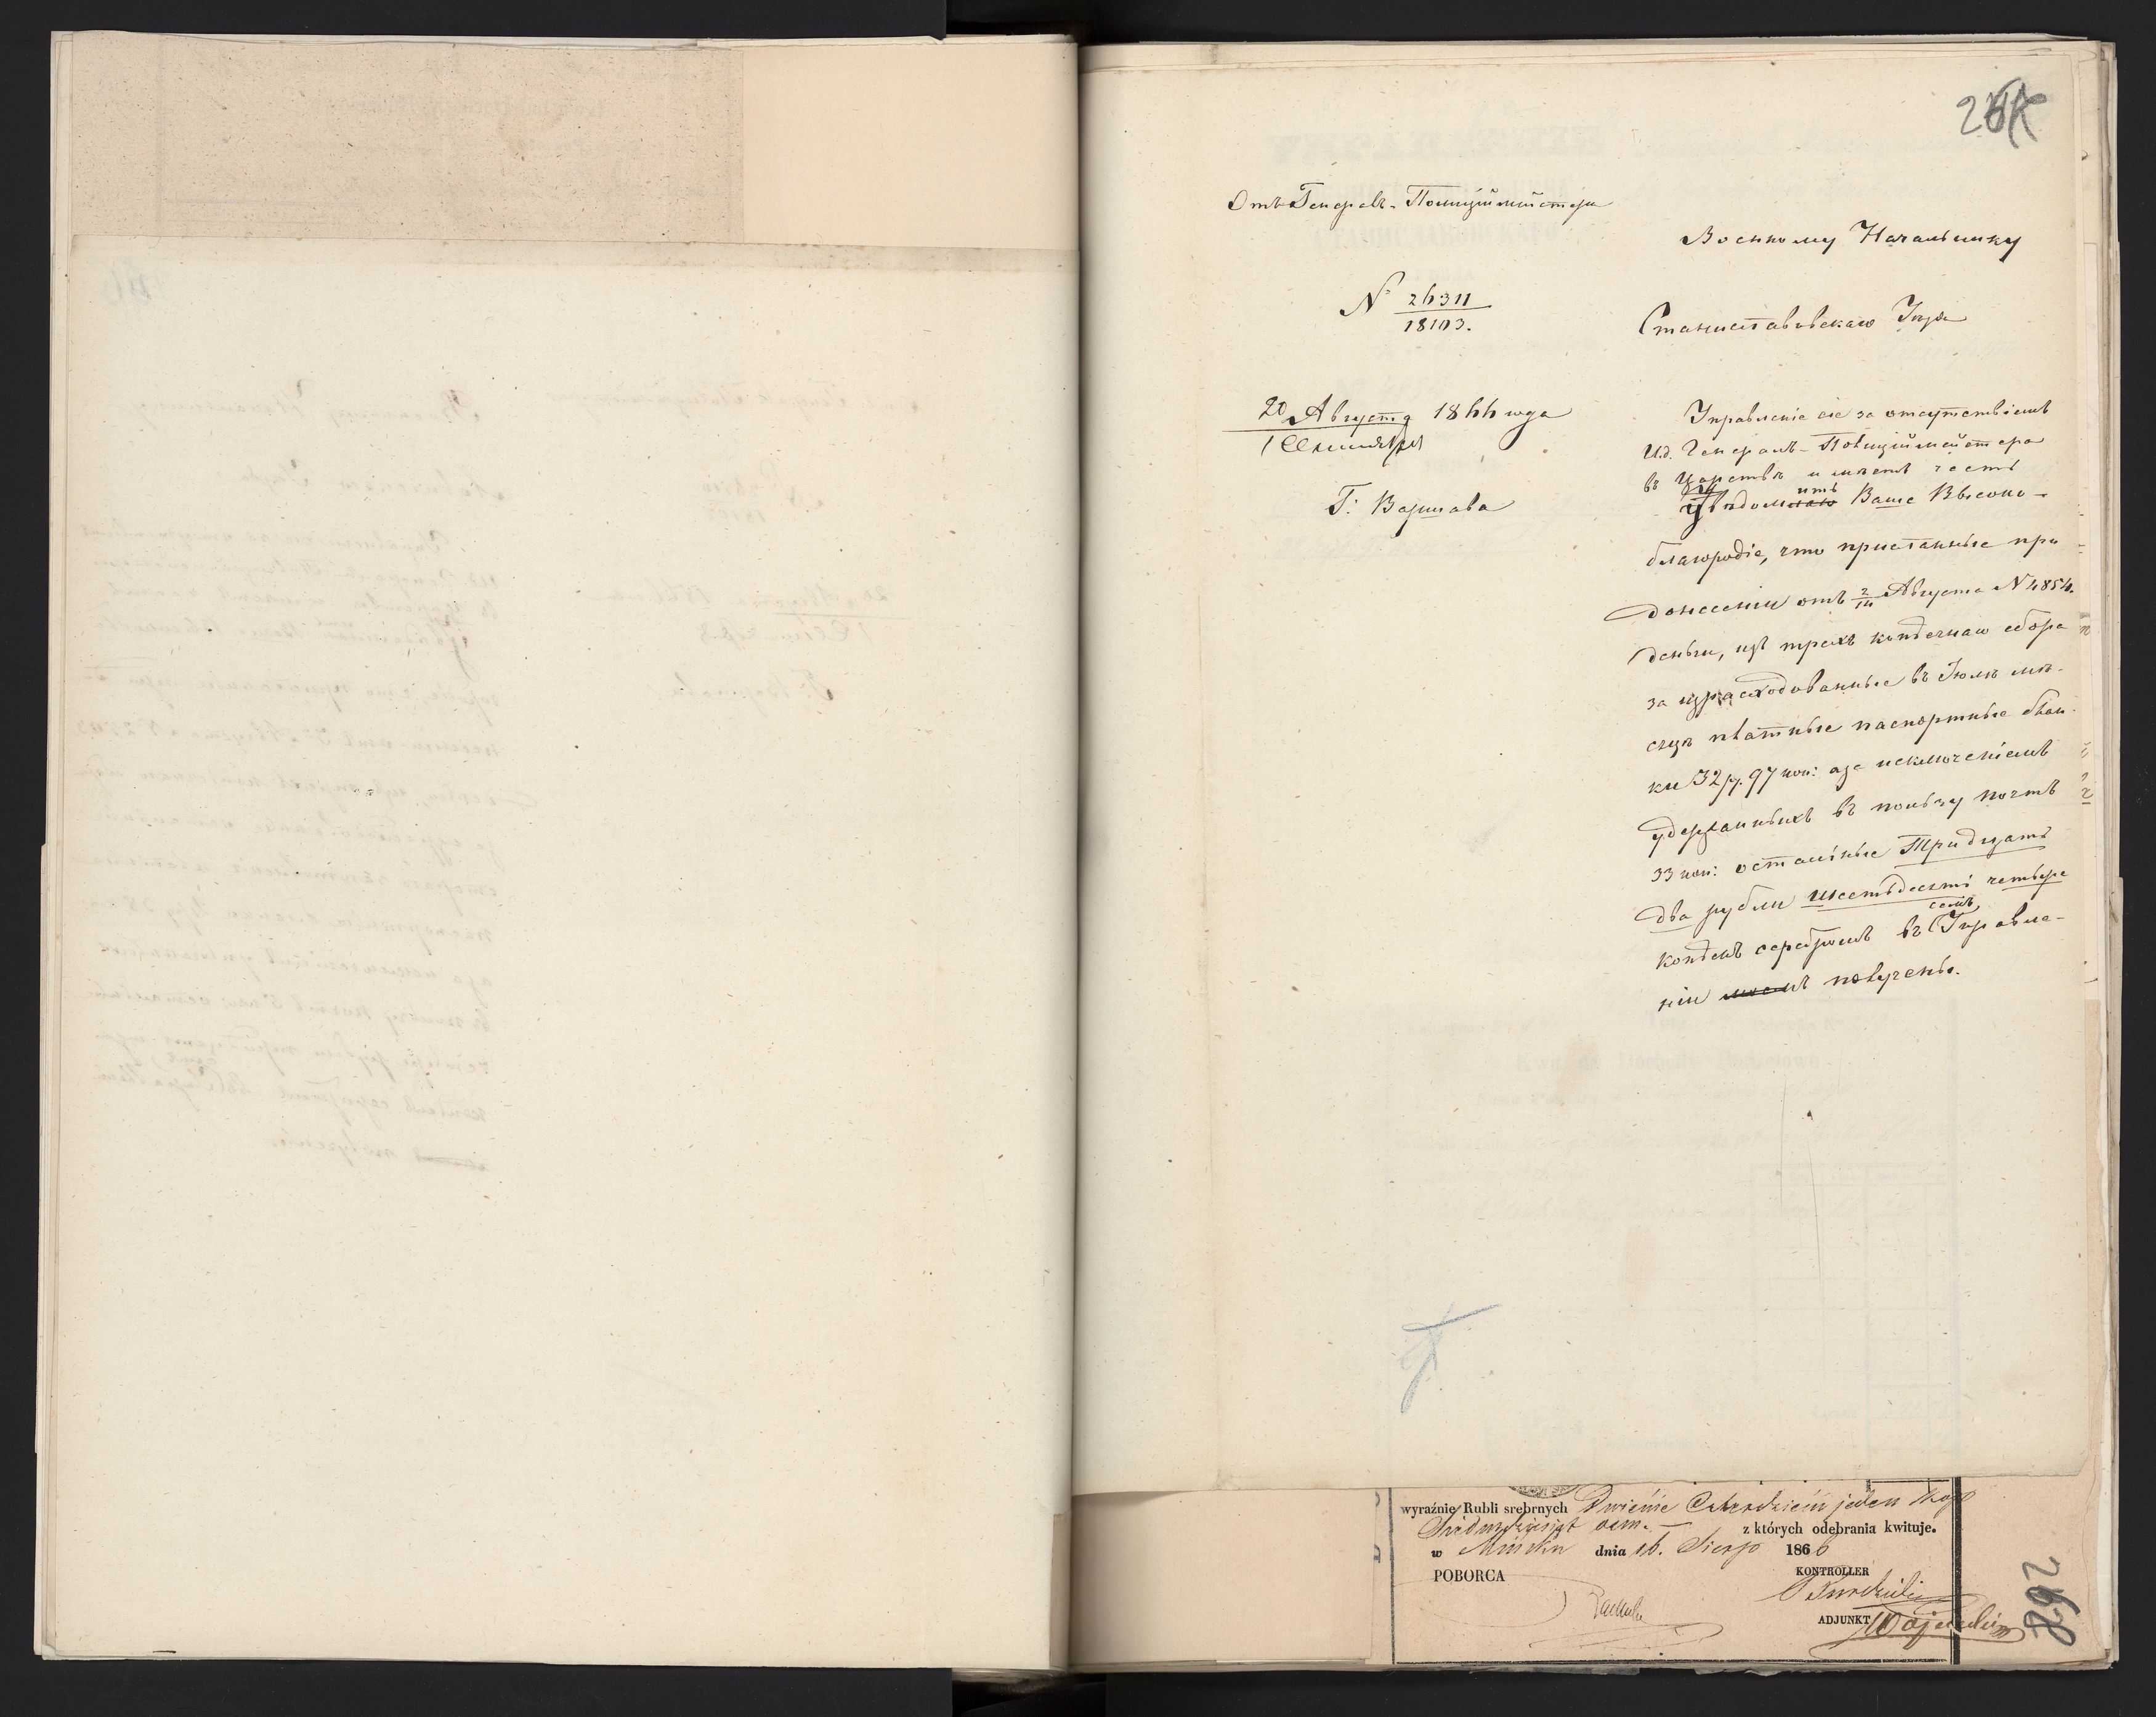 Отъ Генералъ-Полицiймейстера
№ 26311
18103.
20 Августа 1866 года
1 Сентября
Г: Варшава
Военному Начальнику
Станиславовскаго Уѣзда
Управленiе сiе за отсутствiемъ
И.д. Генералъ-Полицiймейстера
въ Царствѣ имѣетъ честь
Увѣдомить Ваше Высоко-
благородiе, что присланныя при
донесенiи отъ 2/14 Августа № 4854.
деньги, изъ трехъ копѣечнаго сбора
за израсходованные въ Iюлѣ мѣ-
сяцѣ платные паспортные блан-
ки 32 р. 97 коп: а за исключенiемъ
удержанныхъ въ пользу почтъ
33 коп: остальные Тридцать
два рубли шестьдесять четыре
копѣекъ серебромъ въ семъ Управле-
нiи получены.
wyraźnie Rubli srebrnych Dwieście Czterdzieści jeden kop
Siedmdziesiąt ośm. z których odebrania kwituje.
w Mińsku dnia 16. Sierp 1866
POBORCA
KONTROLLER
ADJUNKT
262